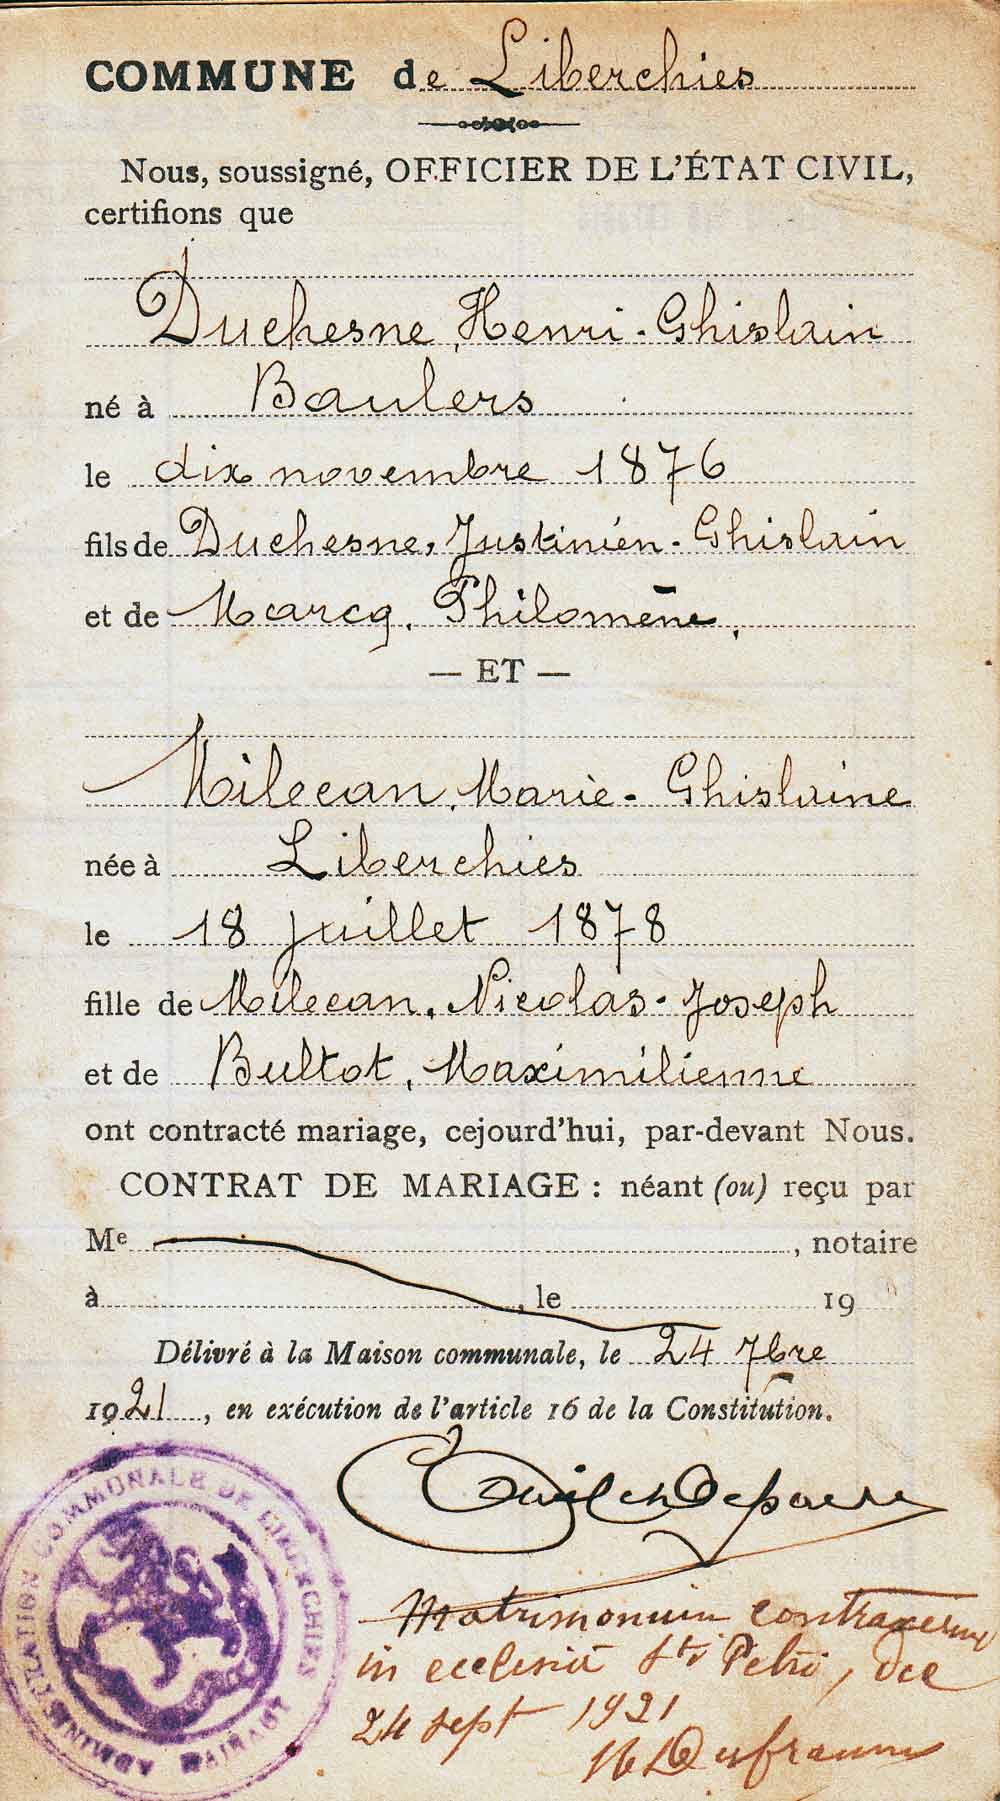 COMMUNE de Liberchies
Nous, soussigné, OFFICIER DE L'ÉTAT CIVIL,
certifions que
Duchesne, Henri-Ghislain
né à Baulers
le dix novembre 1876
fils de Duchesne, Justinien-Ghislain
et de Marcq, Philomène,
— ET —
Milecan, Marie-Ghislaine
née à Liberchies
le 18 juillet 1878
fille de Milecan, Nicolas-Joseph
et de Bultot, Maximilienne
ont contracté mariage, cejourd'hui, par-devant Nous.
CONTRAT DE MARIAGE : néant (ou) reçu par
Me , notaire
à , le 19
Délivré à la Maison communale, le 24 7bre
1921, en exécution de l'article 16 de la Constitution.
ADMINISTRATION COMMUNALE DE LIBERCHIES
HAINAUT
Matrimonium contraxerunt
in ecclesia Sti Petri, die
24 sept 1921